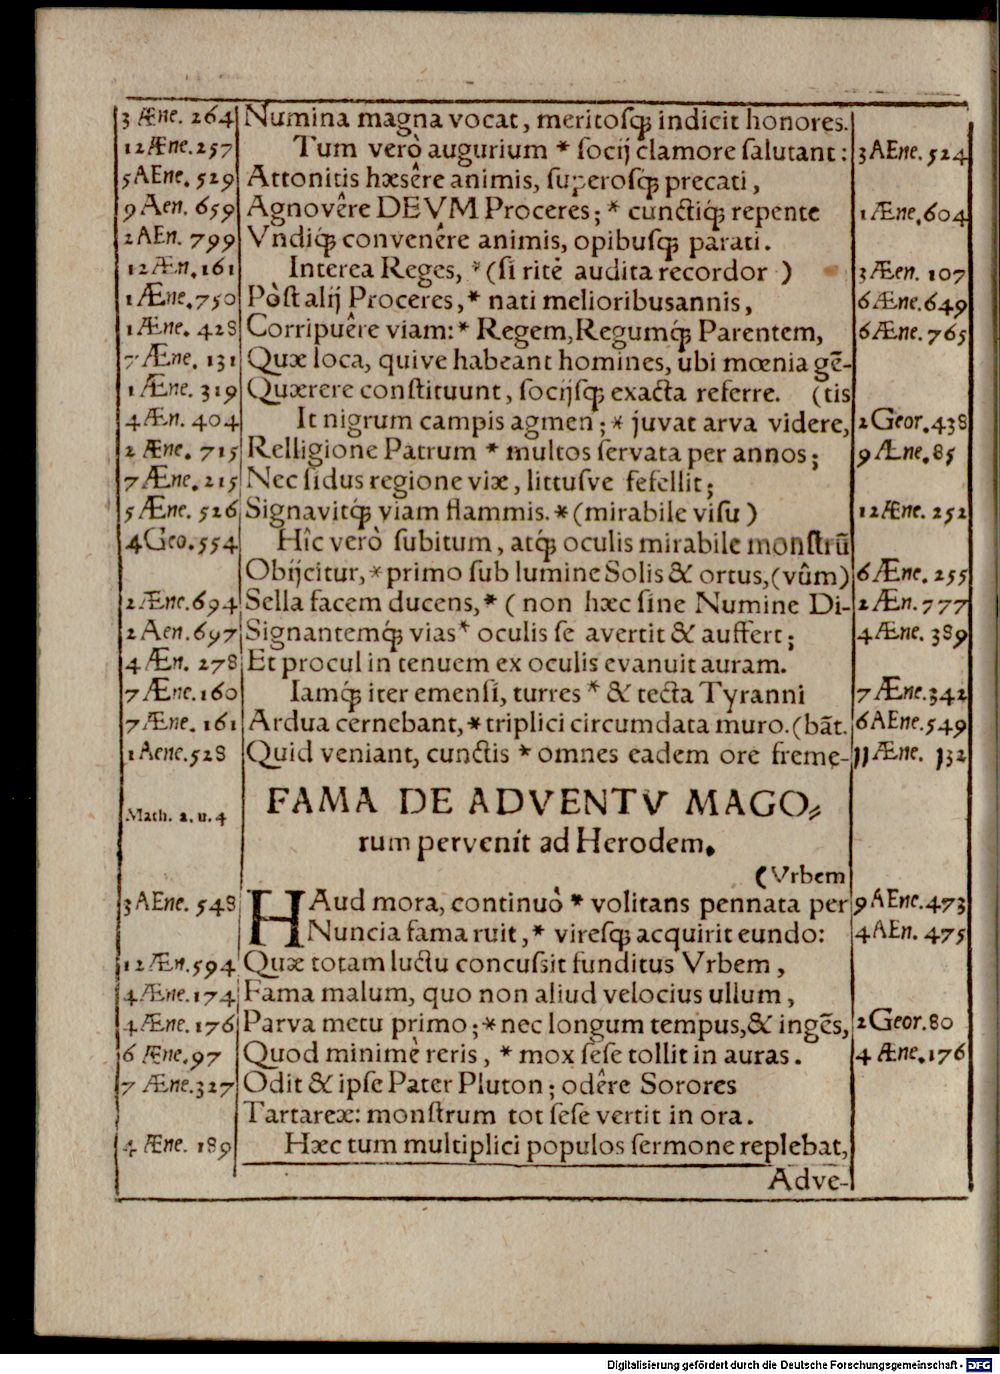 3 Æne. 264 Numina magna vocat, meritosq́; indicit honores.
12Æne.257 Tum verò augurium * socij clamore salutant: 3AEne. 524
5AEne. 529 Attonitis hæsêre animis, superosq́; precati,
9Aen. 659 Agnovêre DEVM Proceres; * cunctiq́; repente 1Æne.604
2AEn. 799 Vndiq́; convenêre animis, opibusq́; parati.
12Æn.161 Interea Reges, *(si ritè audita recordor ) 3Æen. 107
1Æne.750 Pòst alij Proceres,* nati melioribusannis, 6Æne.649
1Æne. 428 Corripuêre viam:* Regem,Regumq́; Parentem, 6Æne.765
7Æne. 131 Quæ loca, quive habeant homines, ubi mœnia gẽ-
1Æne. 319 Quærere constituunt, socijsq́; exacta referre. (tis
4Æn. 404 It nigrum campis agmen;* juvat arva videre, 2Geor.438
2Æne. 715 Relligione Patrum * multos servata per annos; 9Æne.85
7Æne.215 Nec sidus regione viæ, littusve fefellit;
5Æne. 526 Signavitq́; viam flammis.*(mirabile visu) 12Æne. 252
4Geo.554 Hîc verò subitum, atq́; oculis mirabile monstrũ
Obijcitur,*primo sub lumine Solis & ortus,(vûm) 6Æne. 255
2Æne.694 Sella facem ducens,* ( non hæc sine Numine Di- 2Æn.777
2Aen.697 Signantemq́; vias* oculis se avertit & auffert; 4Æne. 389
4Æn. 278 Et procul in tenuem ex oculis evanuit auram.
7Æne.160 Iamq́; iter emensi, turres * & tecta Tyranni 7Æne.342
7Æne. 161 Ardua cernebant,*triplici circumdata muro.(bãt. 6AEne.549
1Aene.528 Quid veniant, cunctis * omnes eadem ore freme- 11Æne. 132
FAMA DE ADVENTV MAGO-
Math. 2. u. 4
rum pervenit ad Herodem.
(Vrbem
3AEne. 548 HAud mora, continuò * volitans pennata per 9AEne.473
Nuncia fama ruit,* viresq́; acquirit eundo: 4AEn. 475
12Æn.594 Quæ totam luctu concussit funditus Vrbem,
4Æne.174 Fama malum, quo non aliud velocius ullum,
4Æne.176 Parva metu primo;*nec longum tempus,& ingẽs, 2Geor.80
6 Æne.97 Quod minimè reris, * mox sese tollit in auras. 4 Æne.176
7 Æne.327 Odit & ipse Pater Pluton; odêre Sorores
Tartareæ: monstrum tot sese vertit in ora.
4 Æne. 189 Hæc tum multiplici populos sermone replebat,
Adve-
Digitalisierung gefördert durch die Deutsche Forschungsgemeinschaft - DFG